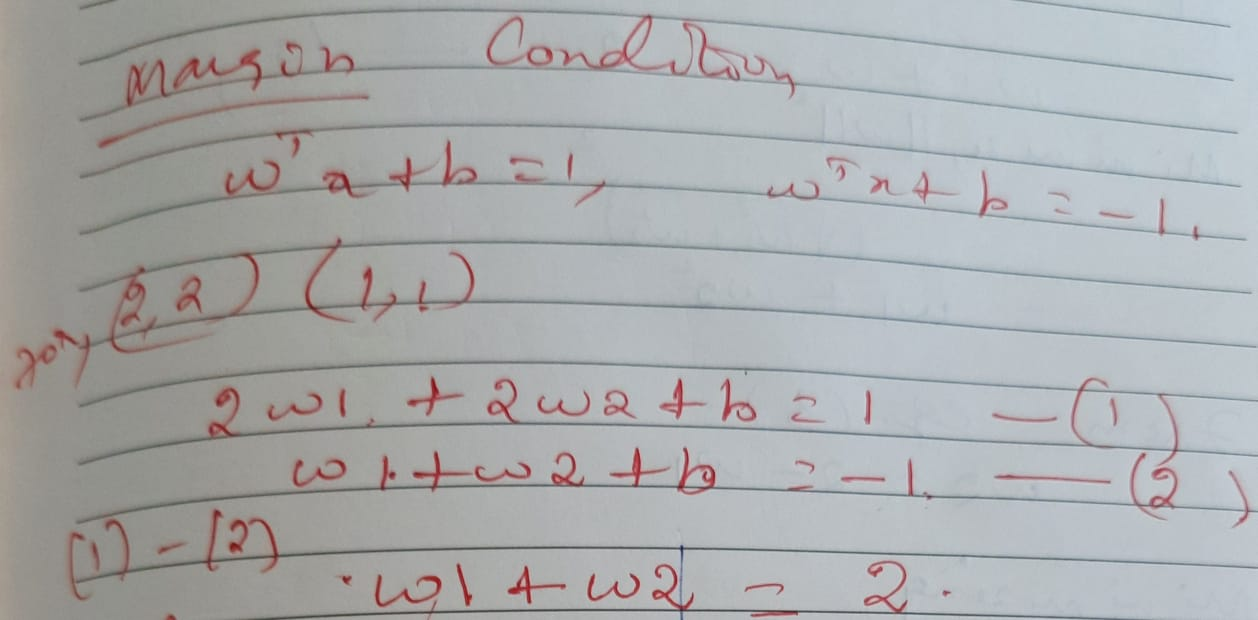 Margin Condition
w^T x + b = 1, w^T x + b = -1.
(2,2) (1,1)
2w1 + 2w2 + b = 1 — (1)
w1 + w2 + b = -1. — (2)
(1) - (2)
w1 + w2 = 2.